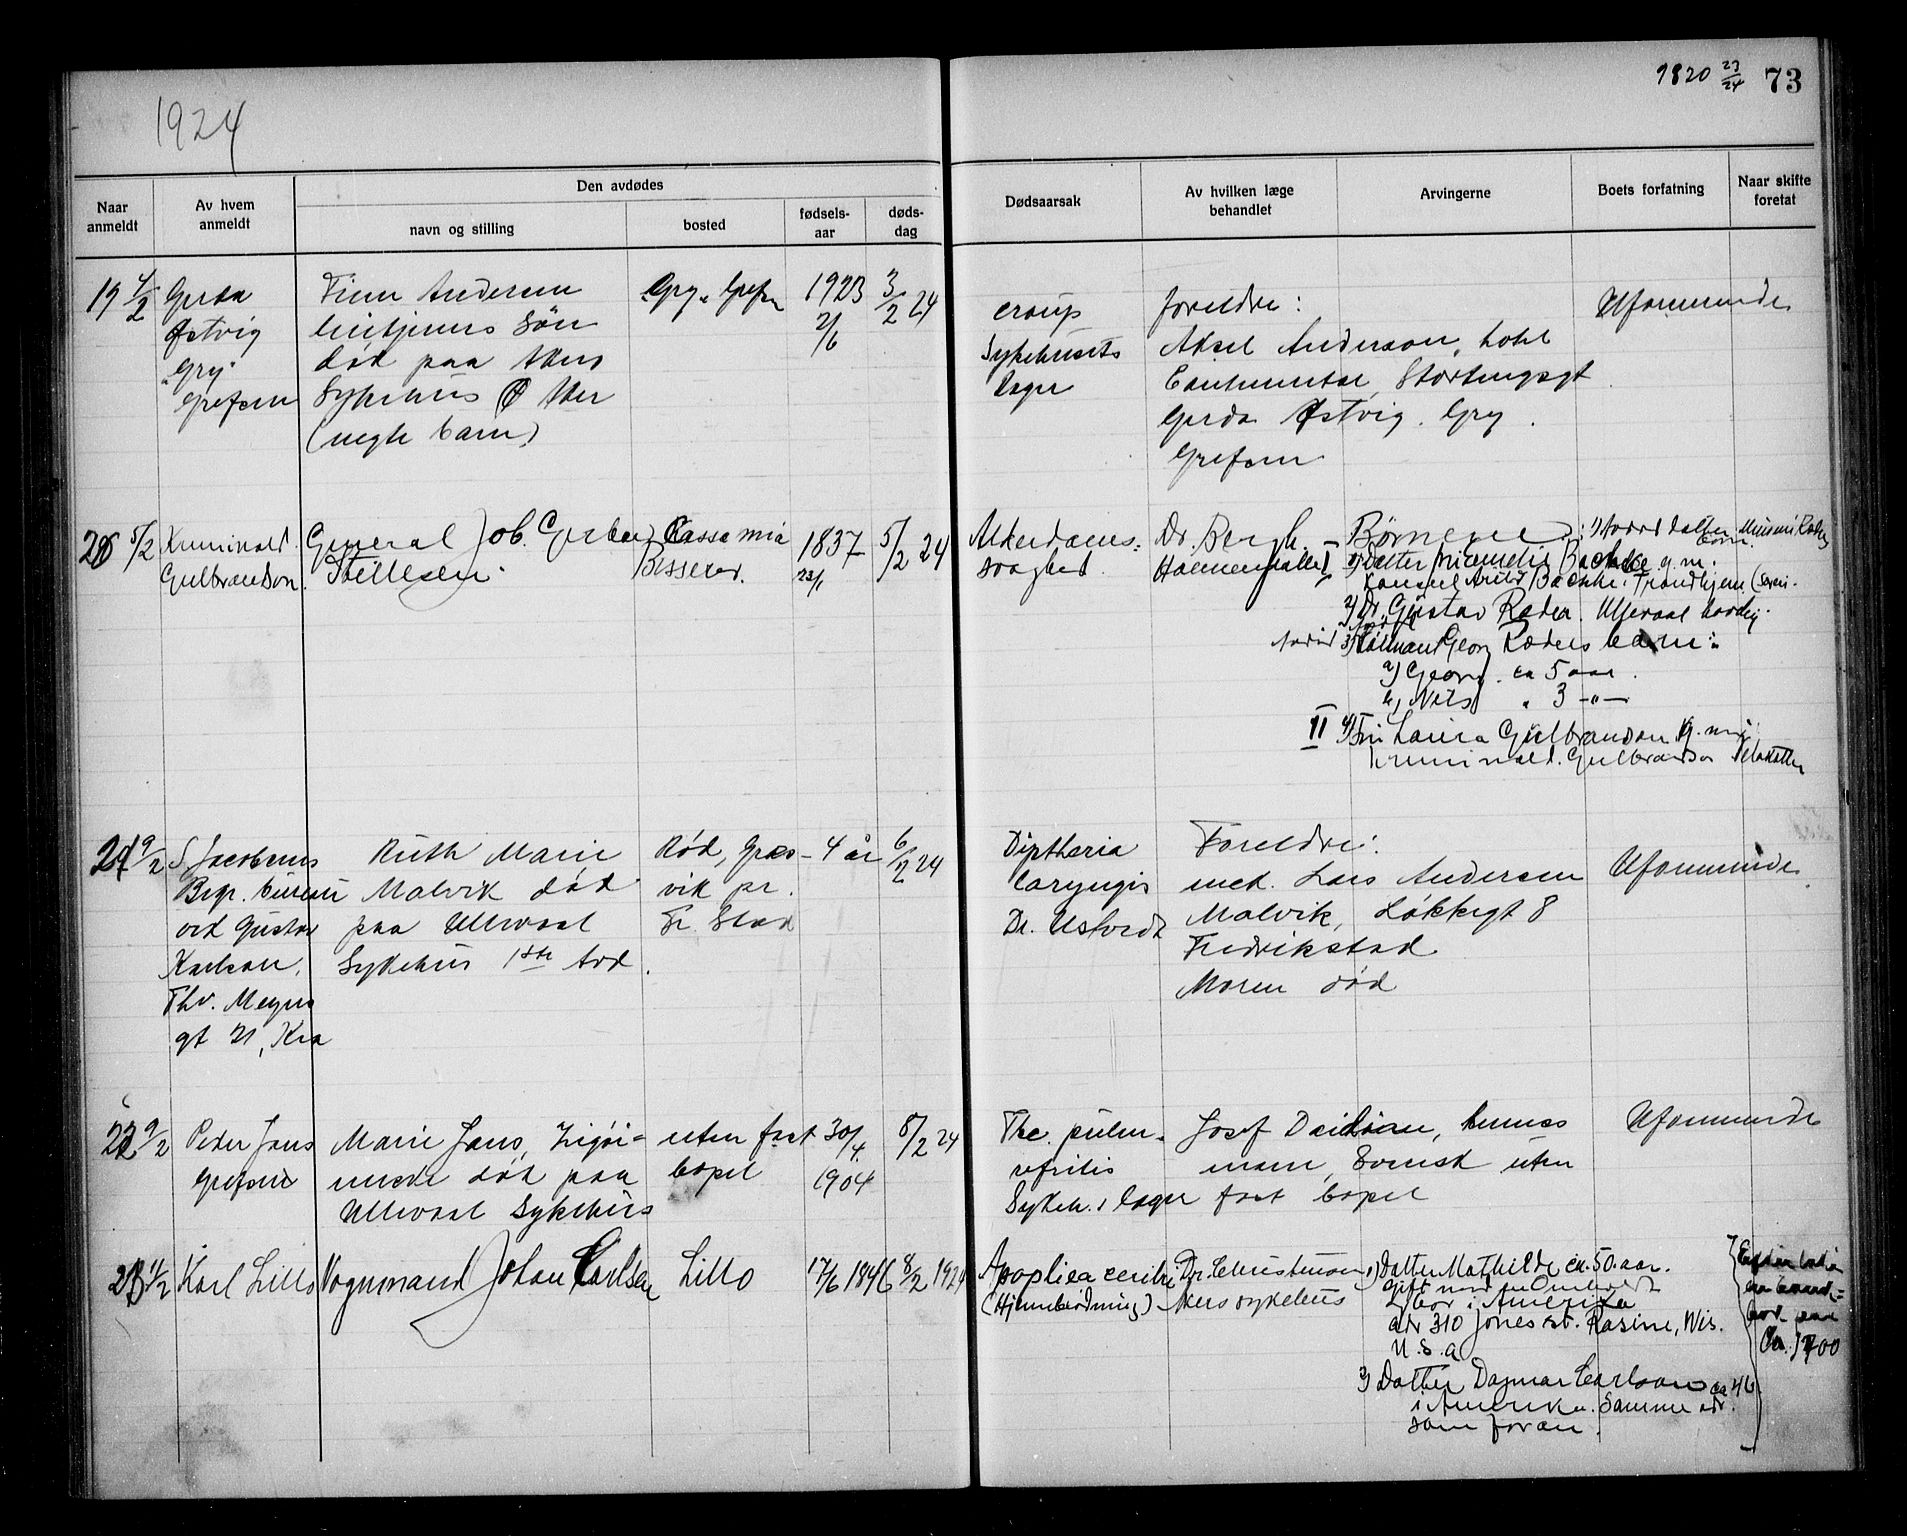 1924
1820 23/24 73
Naar anmeldt
Av hvem anmeldt
Den avdødes
navn og stilling
bosted
fødsels-aar
døds-dag
Dødsaarsak
Av hvilken læge behandlet
Arvingerne
Boets forfatning
Naar skifte foretat
19 4/2
Gerda
Østvig
"Gry"
Grefsen
Finn Andersen
død paa Akers
Sykehus Ø Aker
(uegte barn)
"Gry" Grefsen
1923
2/6
3/2 24
croup
Sykehusets
læger
foreldre:
Aksel Anderson, hotel
Continental, Stortingsgt
Gerda Østvig. Gry.
Grefsen
Uformuende
20 5/2
Kriminald.
Gulbranson.
General Job. Gerber
Casa mia
Besserud.
1837
23/1
5/2 24
Alderdoms-
svaghed.
Dr. Bergh.
I
Børnene
Datter
Bachke g. m.
Konsul Arild Bachke. Trondhjem
2) Dr. Gustav Ræder. Ullevaal
3) Georg Ræders barn:
a) Georg. ca 5 aar.
b) Nils " 3 -"-
II 4) Fru Laura Gulbranson g. m.
Kriminald. Gulbranson
21 9/2
S. Jacobsens
Begr. bureau
ved Gustav
Karlsen,
Thv. Meyers
gt 21, Kra
Ruth Marie
Malvik død
paa Ullevaal
Sykehus 1ste Avd.
Rød, Græs-
vik pr.
Fr. Stad
4 år
6/2 24
Diptheria
laryngis
Dr.
Foreldre:
med. Lars Andersen
Malvik, Løkkegt 8
Fredrikstad
Moren død
Uformuende
22 9/2
Peder Jans
Grefsen
Marie Jans, Zigøi-
nerske død paa
Ullevaal Sykehus
uten fast
bopel
30/4
1904
8/2 24
Tbc. pulm.
nefritis
Sykeh. læger
Josef
hennes
mann, Svensk uten
fast bopel
Uformuende
23 11/2
Karl Lillo
Vognmand Johan Carlsen
Lillo
17/6 1846
8/2 1924
Apoplexia cerebri
(Hjerneblødning)
Dr. Christensen
Akers sykehus
1) Datter Mathilde ca. 50 aar.
gift med
bor i Amerika
adr 310 Jones st. Rasine, Wis.
U.S.a
2) Datter Dagmar Carlson ca 46
i Amerika. Samme adr.
som foran.